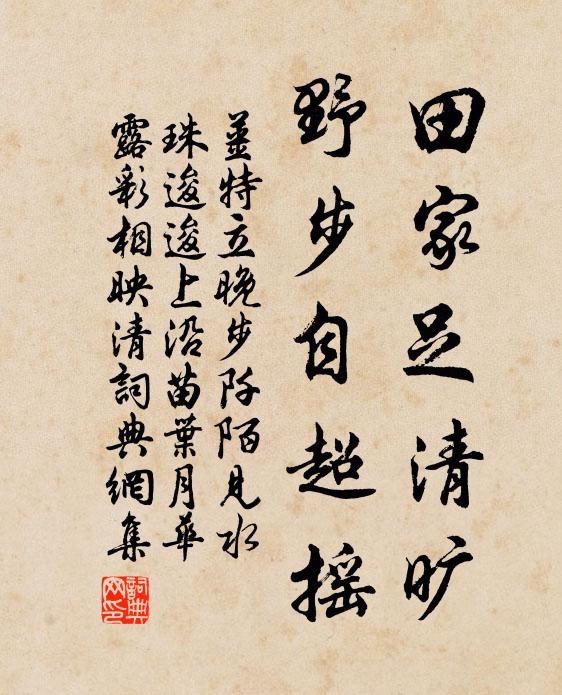 田家足清旷
野步自超摇
薑特立晚步阡陌見水
珠逡逡上沿苗葉月華
露彩相映清詞典網集
詞典
网印